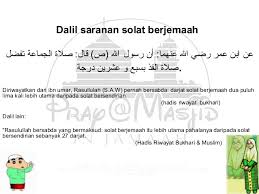 Dalil saranan solat berjemaah
عن ابن عمر رضي الله عنهما: أن رسول الله (ص) قال: صلاة الجماعة تفضل
صلاة الفذ بسبع و عشرين درجة.
Diriwayatkan dari ibn umar, Rasulullah (S.A.W) pernah bersabda: darjat solat berjemaah dua puluh
lima kali lebih utama daripada solat bersendirian
(hadis riwayat bukhari)
Dalil lain:
"Rasulullah bersabda yang bermaksud: solat berjemaah itu lebih utama pahalanya daripada solat
bersendirian sebanyak 27 darjat.
(Hadis Riwayat Bukhari & Muslim)
PRAY@MASJID